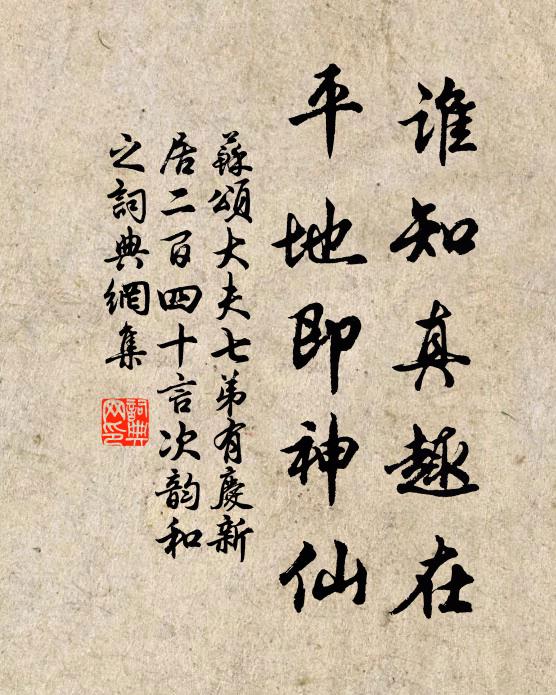 誰知真趣在
平地即神仙
蘇頌大夫七弟有慶新
居二百四十言次韵和
之詞典網集
詞典
网印